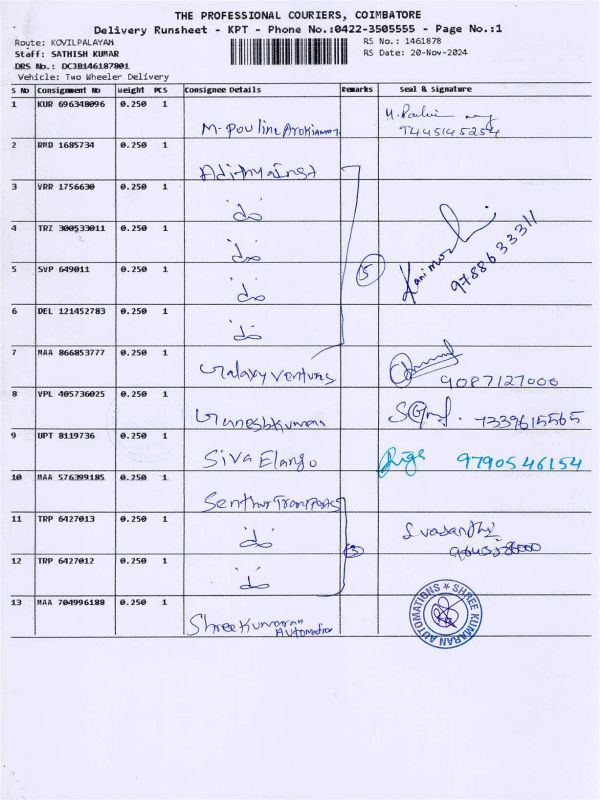 THE PROFESSIONAL COURIERS, COIMBATORE
Delivery Runsheet - KPT - Phone No.:0422-3505555 - Page No.:1
Route: KOVILPALAYAM RS No.: 1461878
Staff: SATHISH KUMAR RS Date: 20-Nov-2024
DRS No.: DCJB146187801
Vehicle: Two Wheeler Delivery
S No Consignment No Weight PCS Consignee Details Remarks Seal & Signature
1 KUR 696348096 0.250 1
M. Pouline Arokiamary
7445145254
2 RMD 1685734 0.250 1
Adithya Inst
3 VRR 1756630 0.250 1
do
4 TRZ 300533011 0.250 1
do
Kanimozhi
9788633311
5 SVP 649011 0.250 1
do
5
6 DEL 121452783 0.250 1
do
7 MAA 866853777 0.250 1
Galaxy Ventures
9087127000
8 VPL 405736025 0.250 1
Ganeshkumar
7339615565
9 UPT 8119736 0.250 1
Siva Elango
9790546154
10 MAA 576399185 0.250 1
Senthur Transports
11 TRP 6427013 0.250 1
do
S vasanthi
3
12 TRP 6427012 0.250 1
do
13 MAA 704996188 0.250 1
Shree Kumaran
Automation
SHREE KUMARAN AUTOMATIONS